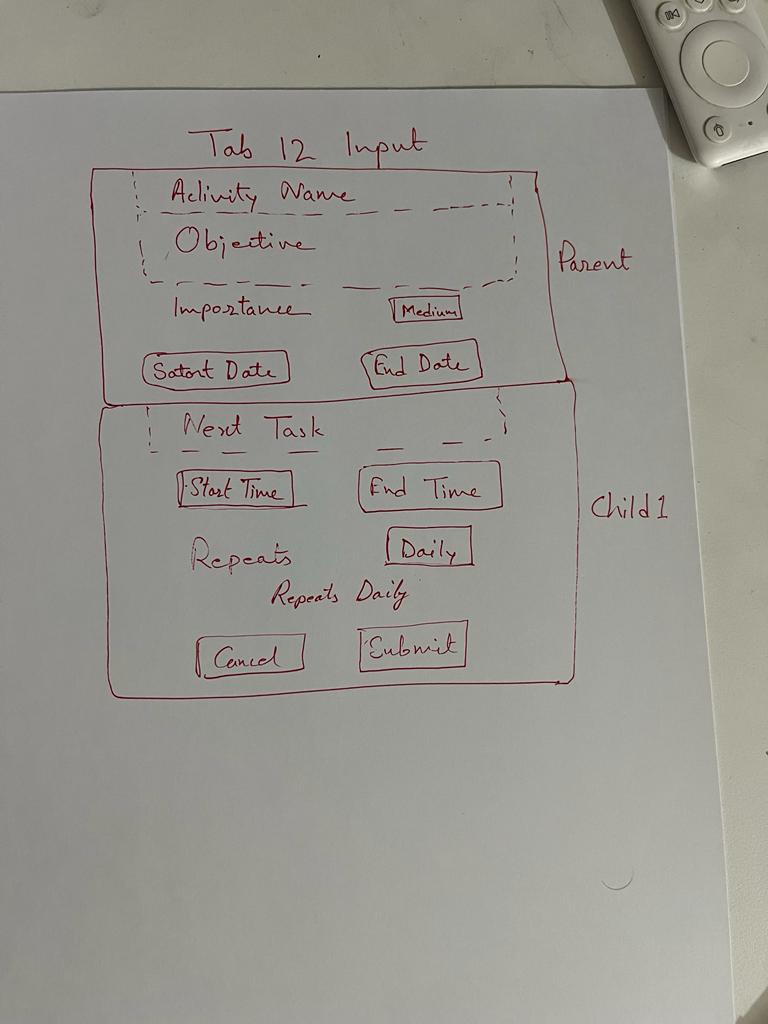 Tab 12 Input
Activity Name
Objective
Parent
Importance Medium
Satart Date End Date
Next Task
Start Time End Time
Child 1
Repeats Daily
Repeats Daily
Cancel Submit